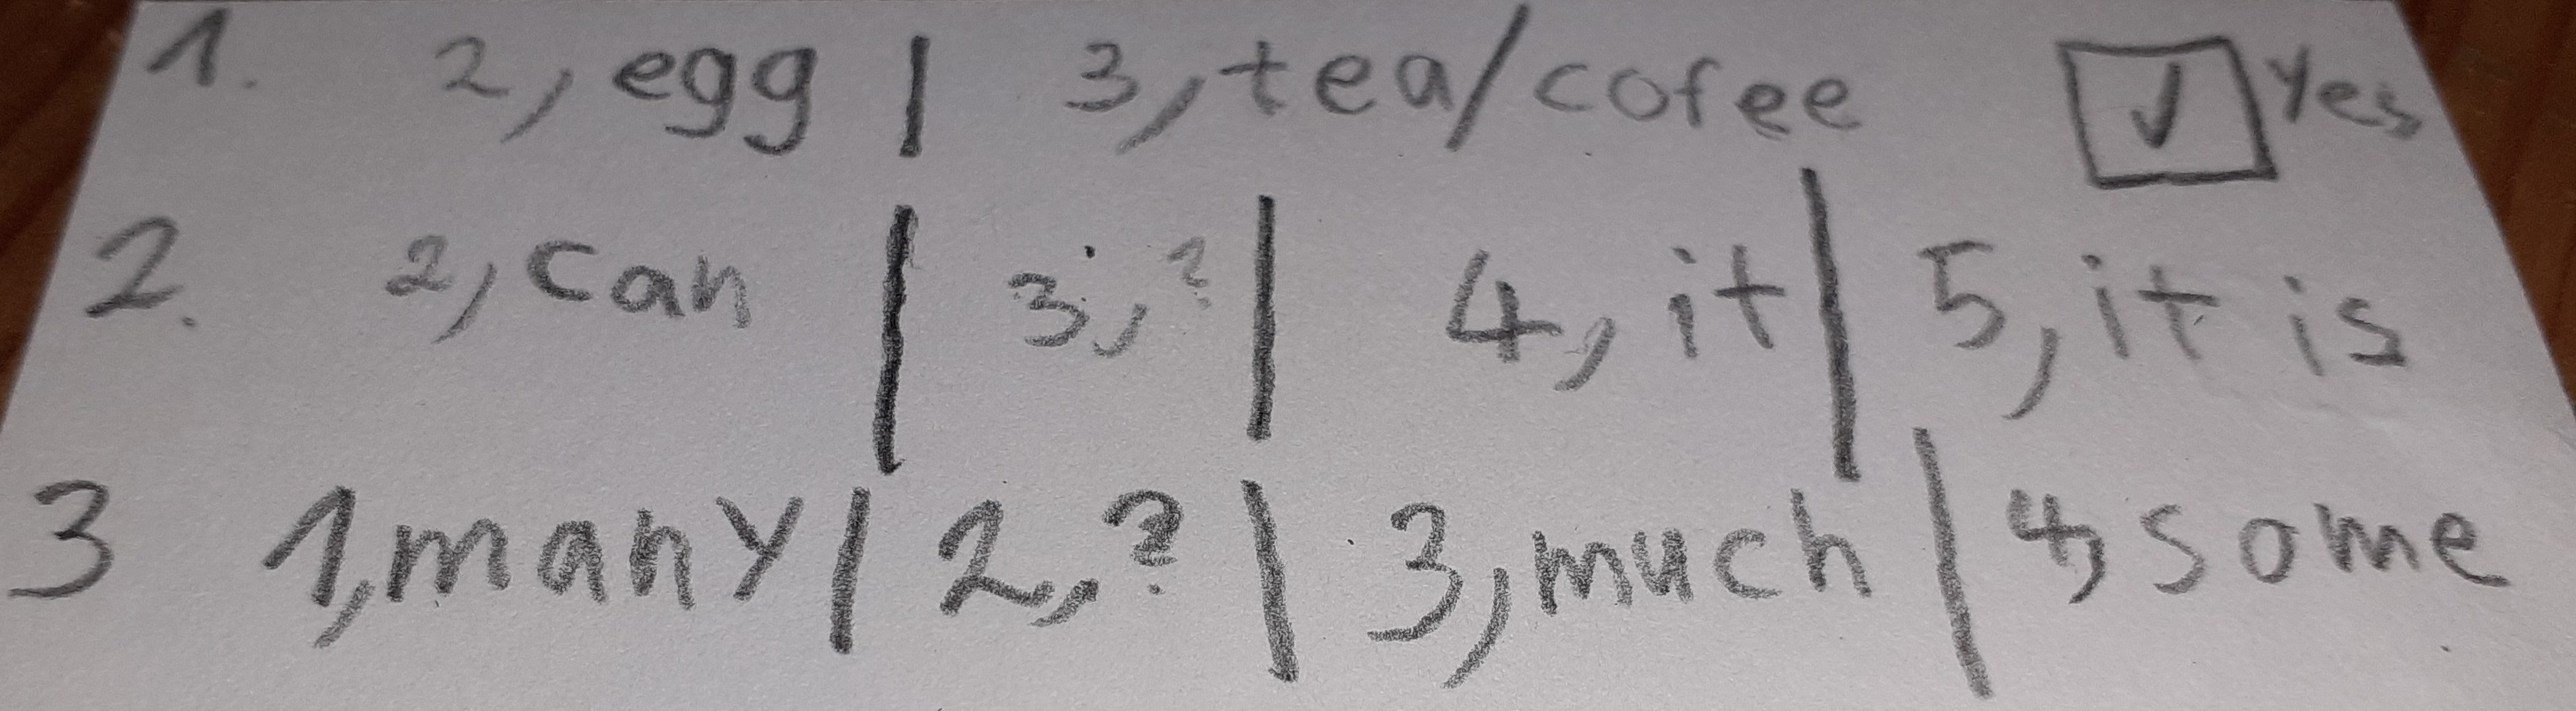 1. 2, egg | 3, tea/cofee ☑ Yes
2. 2, can | 3, ? | 4, it | 5, it is
3 1, many | 2, ? | 3, much | 4, some